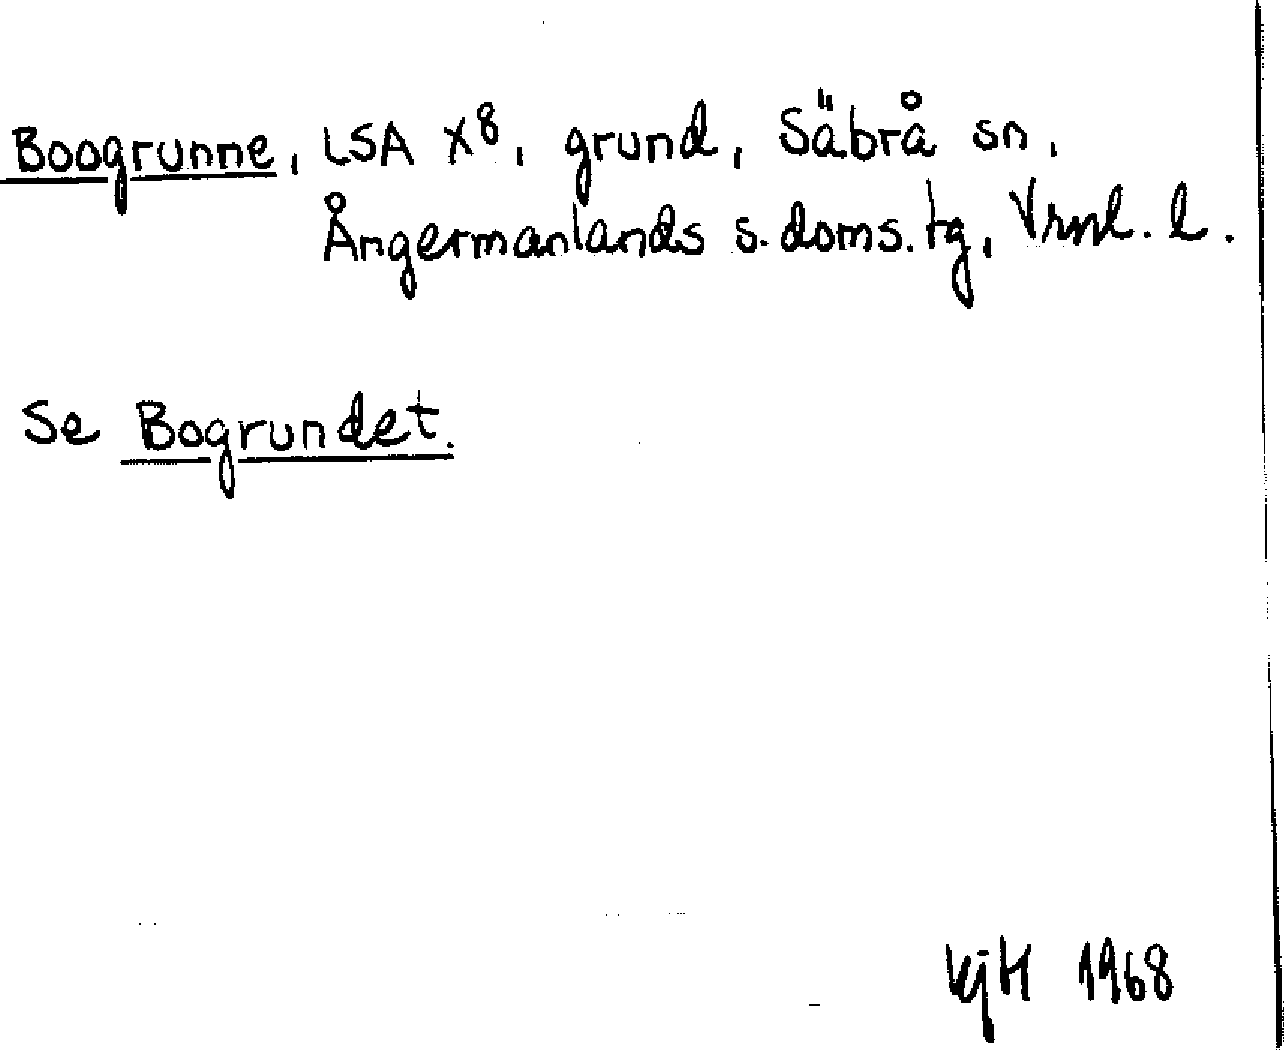 Boogrunne, LSA X⁸, grund, Säbrå sn,
Ångermanlands s. doms. tg, Vrnl. l.
Se Bogrundet.
KjH 1968